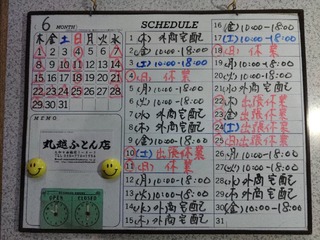 6 MONTH
木 金 土 日 月 火 水
1 2 3 4 5 6 7
8 9 10 11 12 13 14
15 16 17 18 19 20 21
22 23 24 25 26 27 28
29 30 31
MEMO
丸越ふとん店
OPEN CLOSED
SCHEDULE
1 (木) 外商宅配
2 (金) 10:00-18:00
3 (土) 10:00-18:00
4 (日) 休業
5 (月) 10:00-18:00
6 (火) 10:00-18:00
7 (水) 外商宅配
8 (木) 外商宅配
9 (金) 10:00-18:00
10 (土) 出張休業
11 (日) 休業
12 (月) 10:00-18:00
13 (火) 10:00-18:00
14 (水) 外商宅配
15 (木) 外商宅配
16 (金) 10:00-18:00
17 (土) 10:00-18:00
18 (日) 休業
19 (月) 10:00-18:00
20 (火) 10:00-18:00
21 (水) 外商宅配
22 (木) 出張休業
23 (金) 出張休業
24 (土) 出張休業
25 (日) 出張休業
26 (月) 10:00-18:00
27 (火) 10:00-18:00
28 (水) 外商宅配
29 (木) 外商宅配
30 (金) 10:00-18:00
31